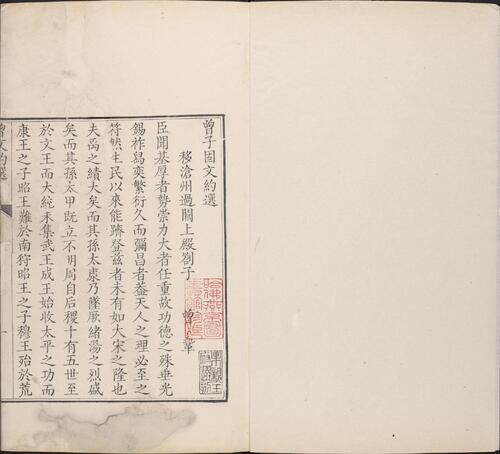 曾子固文約選
移滄州過闕上殿劄子 曾鞏
臣聞基厚者勢崇力大者任重故功德之殊垂光
錫祚舄奕繁衍久而彌昌者葢天人之理必至之
符然生民以來能躋登茲者未有如大宋之隆也
夫禹之績大矣而其孫太康乃墜厥緒湯之烈盛
矣而其孫太甲既立不明周自后稷十有五世至
於文王而大統未集武王成王始收太平之功而
康王之子昭王難於南狩昭王之子穆王殆於荒
曾文約選
一